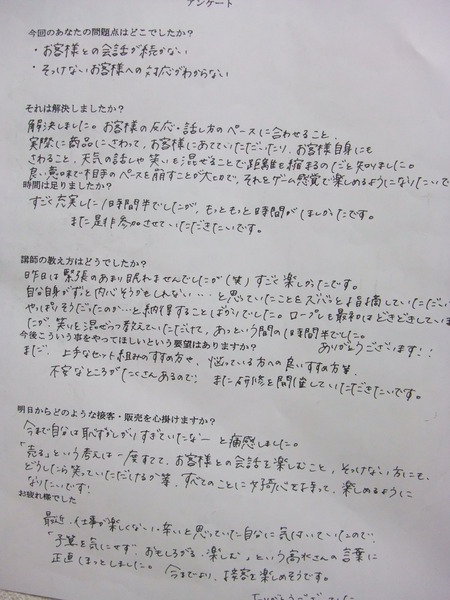 アンケート
今回のあなたの問題点はどこでしたか？
・お客様との会話が続かない
・そっけないお客様への対応がわからない
それは解決しましたか？
解決しました。お客様の反応・話し方のペースに合わせること、
実際に商品にさわって、お客様にあてていただいたり、お客様自身にも
さわること、天気の話しや笑いを混ぜることで距離を縮まるのだと知りました。
良い意味で相手のペースを崩すことが大切で、それをゲーム感覚で楽しめるようになりたいで
時間は足りましたか？
すごく充実した1日時間半でしたが、もっともっと時間がほしかたです。
また是非参加させていただきたいです。
講師の教え方はどうでしたか？
昨日は緊張のあまり眠れませんでしたが（笑）すごく楽しかたです。
自分自身がずっと内心そうかもしれない…と思っていたことをズバッと指摘していただいて
やっぱりそうだったのか…と納得することばかりでした。ロープレも最初はどきどきしていま
たが、笑いを混ぜつつ教えていただけて、あっという間の1日時間半でした。
ありがとうございます！！
今後こういう事をやってほしいという要望はありますか？
まだ、上手なセット組みのすすめ方や、悩っている方への良いすすめ方等、
不安なところがたくさんあるので、また研修を開催していただきたいです。
明日からどのような接客・販売を心掛けますか？
今まで自分は恥ずかしがりすぎていたなーと痛感しました。
「売る」という考えは一度すてて、お客様との会話を楽しむこと、そっけない方にも、
どうしたら笑っていただけるか等、すべてのことに好奇心を持って、楽しめるように
なりたいです！
お疲れ様でした
最近、仕事が楽しくない・辛いと思っていた自分に気付いていたので、
「予算を気にせず、おもしろがる、楽しむ」という高水さんの言葉に
正直ほっとしました。 今までより、接客を楽しめそうです。
ありがとうございました